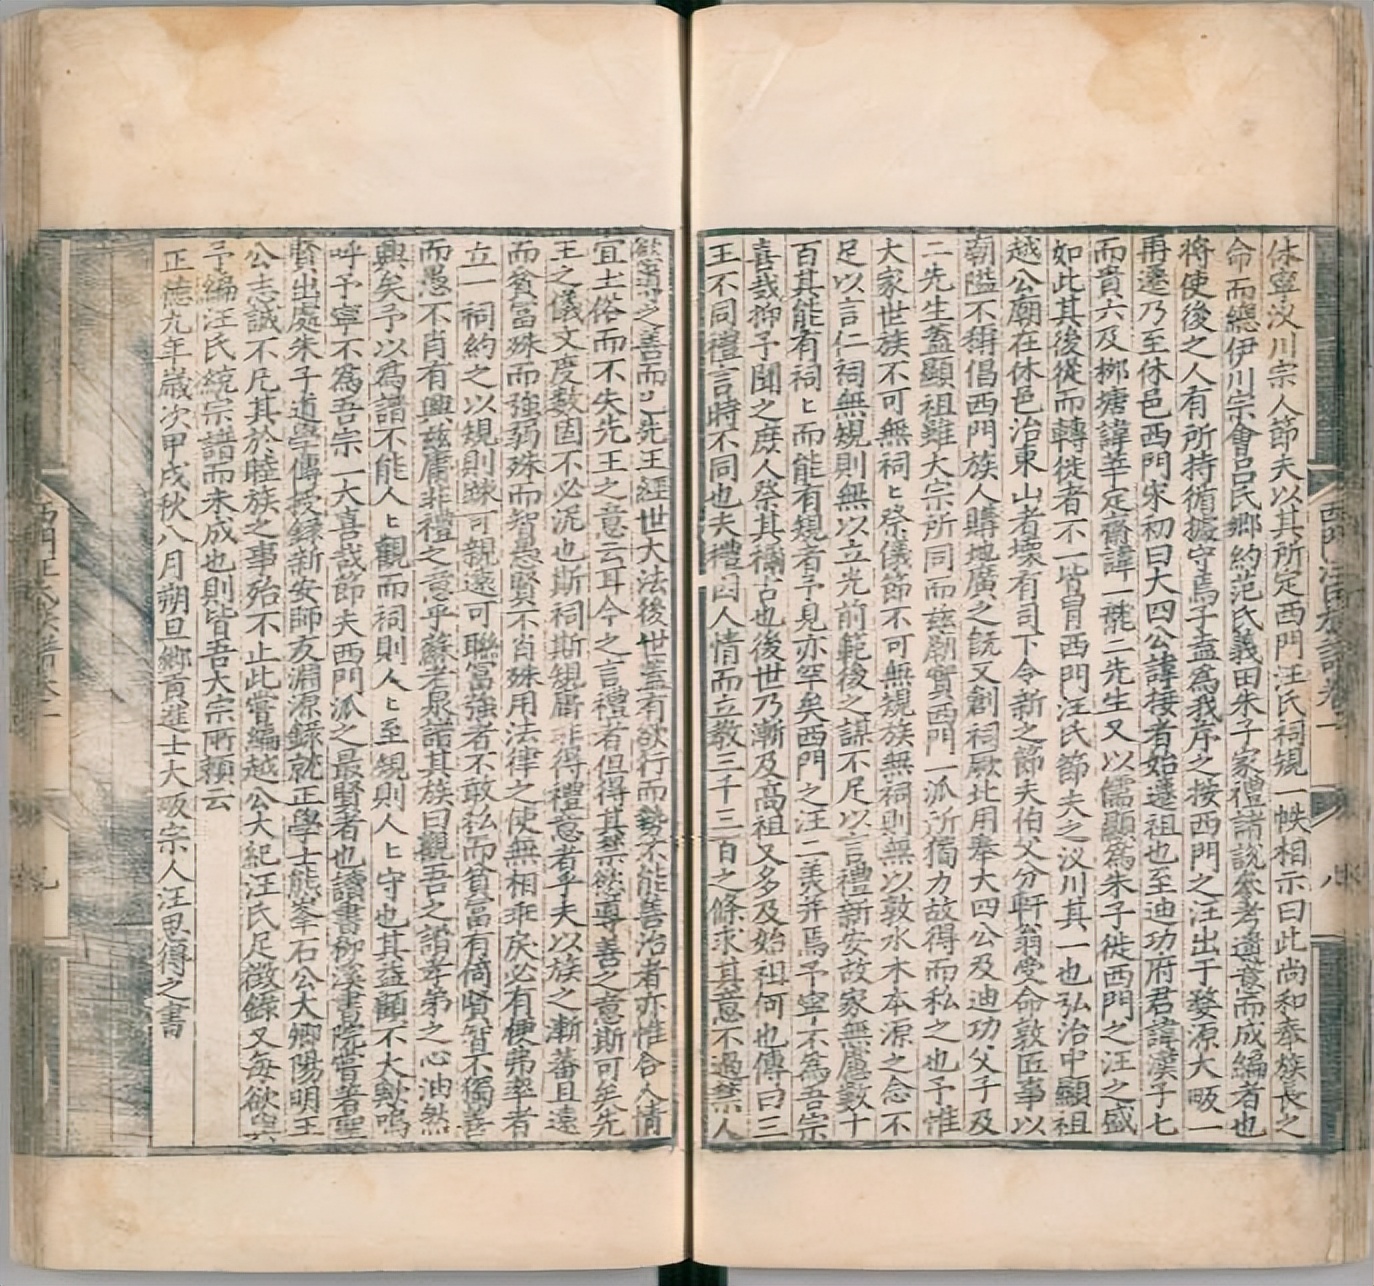 休寧汊川宗人節夫以其所定西門汪氏祠規一帙相示曰此尚和奉族長之
命而緫伊川宗會呂氏鄉約范氏義田朱子家禮諸說參考遺意而成編者也
將使後之人有所持循據守焉子盍為我序之按西門之汪出于婺源大畈一
再遷乃至休邑西門宋初曰大四公諱接者始遷祖也至迪功府君諱漢子七
而貴六及栁塘諱莘定齋諱一龍二先生又以儒顯為朱子徙西門之汪之盛
如此其後從而轉徙者不一皆冐西門汪氏節夫之汊川其一也弘治中顯祖
越公廟在休邑治東山者壞有司下令新之節夫伯父分軒翁受命敦匠事以
廟隘不稱倡西門族人購地廣之旣又創祠厥北用奉大四公及迪功父子及
二先生蓋顯祖雖大宗所同而兹廟實西門一派所獨力故得而私之也予惟
大家世族不可無祠匕祭儀節不可無規族無祠則無以敦水木本源之念不
足以言仁祠無規則無以立光前範後之謨不足以言禮新安故家無慮數十
百其能有祠匕而能有規者予見亦罕矣西門之汪二美并焉予寧不為吾宗
喜哉抑予聞之庶人祭其禰古也後世乃漸及高祖又多及始祖何也傳曰三
王不同禮言時不同也夫禮因人情而立教三千三百之條求其意不過禁人
慾導之善而已先王經世大法後世蓋有欲行而勢不能善治者亦惟合人情
宜土俗而不失先王之意云耳今之言禮者但得其禁慾導善之意斯可矣先
王之儀文度數固不必泥也斯祠斯規庸非得禮意者乎夫以族之漸蕃且遠
而貧富殊而強弱殊而智愚賢不肖殊用法律之使無相乖戾必有梗弗率者
立一祠約之以規則踈可親遠可聯富強者不敢私而貧富有倚賢智不獨善
而愚不肖有興兹庸非禮之意乎蘇老泉譜其族曰觀吾之譜孝弟之心油然
興矣予以為譜不能人匕觀而祠則人匕至規則人匕守也其益顧不大歟嗚
呼予寧不為吾宗一大喜哉節夫西門派之最賢者也讀書栁溪書院嘗著聖
賢出處朱子道學傳授錄新安師友淵源錄就正學士熊峯石公大卿陽明王
公志誠不凡其於睦族之事殆不止此嘗編越公大紀汪氏足徵錄又每欲與
予編汪氏統宗譜而未成也則皆吾大宗所賴云
正德九年歲次甲戌秋八月朔旦鄉貢進士大畈宗人汪思得之書